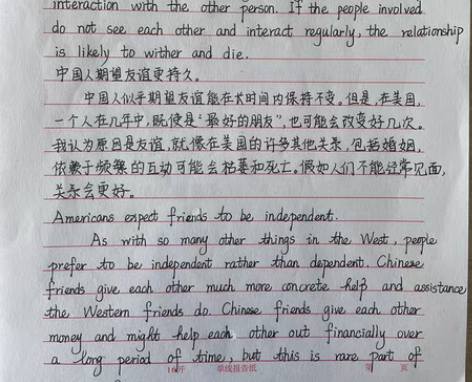 interaction with the other person. If the people involved
do not see each other and interact regularly, the relationship
is likely to wither and die.
中国人期望友谊更持久。
中国人似乎期望友谊能在长时间内保持不变。但是,在美国,
一个人在几年中,既使是“最好的朋友”,也可能会改变好几次。
我认为原因是友谊,就像在美国的许多其他关系,包括婚姻,
依赖于频繁的互动可能会枯萎和死亡。假如人们不能经常见面,
关系会更好。
Americans expect friends to be independent.
As with so many other things in the West, people
prefer to be independent rather than dependent. Chinese
friends give each other much more concrete help and assistance
the Western friends do. Chinese friends give each other
money and might help each other out financially over
a long period of time, but this is rare part of
16开 单线报告纸 第 页